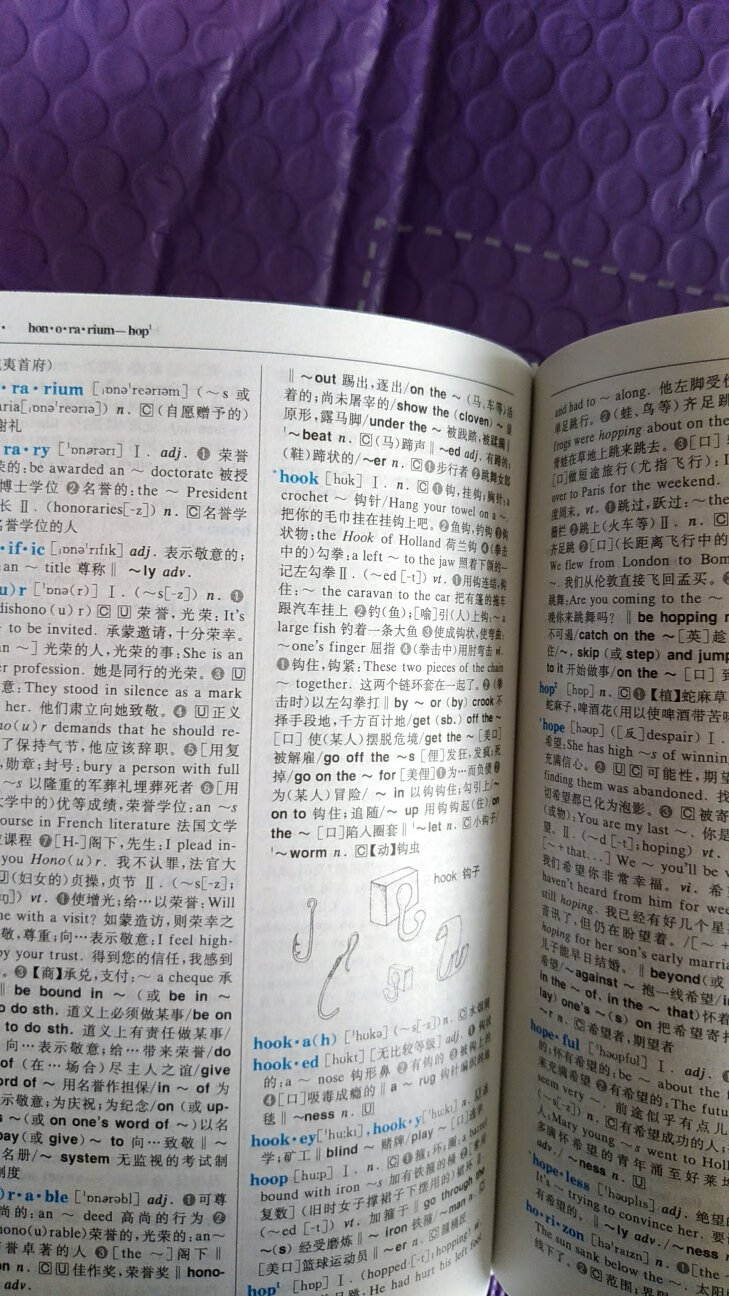 hon·o·ra·rium—hop¹
夷首府)
·ra·rium [ˌɒnə'reərɪəm] (～s 或
aria[ˌɒnə'reərɪə]) n. C (自愿赠予的)
谢礼
ra·ry ['ɒnərərɪ] Ⅰ. adj. ❶ 荣誉
的: be awarded an ～ doctorate 被授
博士学位 ❷名誉的: the ～ President
长 Ⅱ. (honoraries[-z]) n. C 名誉学
名誉学位的人
·if·ic [ˌɒnə'rɪfɪk] adj. 表示敬意的;
an ～ title 尊称 ‖ ～ly adv.
u)r ['ɒnə(r)] Ⅰ. (～s[-z]) n. ❶
dishono(u)r] C U 荣誉, 光荣: It's
～ to be invited. 承蒙邀请, 十分荣幸。
an ～] 光荣的人, 光荣的事: She is an
er profession. 她是同行的光荣。❸ U
意: They stood in silence as a mark
her. 他们肃立向她致敬。❹ U 正义
no(u)r demands that he should re-
了保持气节, 他应该辞职。❺[用复
, 勋章; 封号: bury a person with full
～s 以隆重的军葬礼埋葬死者 ❻[用
大学中的)优等成绩, 荣誉学位: an ～s
ourse in French literature 法国文学
位课程 ❼[H-]阁下, 先生: I plead in-
you Hono(u)r. 我不认罪, 法官大
U (妇女的)贞操, 贞节 Ⅱ. (～s[-z];
vt. ❶使增光; 给…以荣誉: Will
me with a visit? 如蒙造访, 则荣幸之
敬, 尊重; 向…表示敬意: I feel high-
by your trust. 得到您的信任, 我感到
。❸【商】承兑, 支付: ～ a cheque 承
‖ be bound in ～ (或 be in ～
to do sth. 道义上必须做某事/be on
to do sth. 道义上有责任做某事/
向…表示敬意; 给…带来荣誉/do
of (在…场合)尽主人之谊/give
ord of ～ 用名誉作担保/in ～ of 为
示敬意; 为庆祝; 为纪念/on (或 up-
s ～(或 on one's word of ～)以名
pay(或 give) ～ to 向…致敬 ‖ ～
名册/～ system 无监视的考试制
制度
)r·a·ble ['ɒnərəbl] adj. ❶可尊
尚的: an ～ deed 高尚的行为 ❷
hono(u)rable) 荣誉的, 光荣的: an～
誉卓著的人 ❸[the ～]阁下 ‖
n. C U 佳作奖, 荣誉奖 ‖ hono-
adv.
‖ ～out 踢出, 逐出/on the ～ (马, 车等)活
着的; 尚未屠宰的/show the (cloven) ～ 显
原形, 露马脚/under the ～ 被践踏, 被蹂躏 ‖
'～beat n. C (马)蹄声 ‖ ～ed adj. 有蹄的;
(鞋)蹄状的/～er n. C ❶步行者 ❷跳舞女郎
*hook [hʊk] Ⅰ. n. C ❶钩, 挂钩; 钩针: a
crochet ～ 钩针/Hang your towel on a ～.
把你的毛巾挂在挂钩上吧。❷鱼钩, 钓钩 ❸钩
状物: the Hook of Holland 荷兰钩 ❹(拳击
中的)勾拳: a left ～ to the jaw 照着下颌的一
记左勾拳 Ⅱ. (～ed [-t]) vt. ❶用钩连结; 钩
住: ～ the caravan to the car 把有篷的拖车
跟汽车挂上 ❷钓(鱼); [喻]引(人)上钩: ～ a
large fish 钓着一条大鱼 ❸使成钩状, 使弯曲:
～one's finger 屈指 ❹(拳击中)用肘弯击 vi.
❶钩住, 钩紧: These two pieces of the chain
～ together. 这两个链环套在一起了。❷(拳
击时)以左勾拳打 ‖ by ～ or (by) crook 不
择手段地, 千方百计地/get (sb.) off the ～
[口] 使(某人)摆脱危境/get the ～ [美口]
被解雇/go off the ～s [俚]发狂, 发疯; 死
掉/go on the ～ for [美俚] ❶为…而负债 ❷
为(某人)冒险/～ in 以钩钩住; 勾引上/～
on to 钩住; 追随/～ up 用钩钩起(住)/on
the ～ [口]陷入圈套 ‖ '～let n. C 小钩子/
'～worm n. C【动】钩虫
hook 钩子
hook·a(h) ['hʊkə] (～s[-z]) n. C 水烟筒
hook·ed [hʊkt] [无比较等级] adj. ❶ 钩状
的: a ～ nose 钩形鼻 ❷有钩的 ❸被钩上的
❹[口]吸毒成瘾的 ‖ a ～ rug 钩针编织的地
毯 ‖ ～ness n. U
hook·ey['hu:kɪ], hook·y['hu:kɪ] n. U 逃
学; 旷工 ‖ blind ～ 赌牌/play ～ [口]逃学
hoop [hu:p] Ⅰ. n. C ❶箍; 环; 圈: a barrel
bound with iron ～s 加有铁箍的桶 ❷[常用
复数] (旧时女子撑裙子下摆用的) 裙环 Ⅱ.
(～ed [-t]) vt. 加箍于 ‖ go through the
～(s) 经受磨炼/～ iron 铁箍/～man n. C
[美口]篮球运动员 ‖ ～er n. C 箍桶匠
hop¹ [hɒp] Ⅰ. (hopped[-t]; hopping) vi.
He had hurt his left foot
and had to ～ along. 他左脚受
单足跳行。❷(蛙、鸟等) 齐足跳
frogs were hopping about on the
青蛙在草地上跳来跳去。❸[口]
[口]做短途旅行(尤指飞行): I
over to Paris for the weekend.
度周末。vt. ❶跳过, 跃过: ～the
栅栏 ❷跳上(火车等) Ⅱ. n. C
齐足跳 ❷[口](长距离飞行中的
We flew from London to Bom
～. 我们从伦敦直接飞回孟买。
跳舞: Are you coming to the ～
晚你来跳舞吗? ‖ be hopping m
不可遏/catch on the ～ [英] 趁
住/～, skip (或 step) and jump
to it 开始做事/on the ～ [口]
hop² [hɒp] n. C ❶【植】蛇麻草
蛇麻子, 啤酒花(用以使啤酒带苦味
*hope [həʊp] ([反]despair) Ⅰ.
希望: She has high ～s of winnin
充满信心。❷ U C 可能性, 期望
finding them was abandoned. 找
切希望都已化为泡影。❸ C 被寄
(或物): You are my last ～. 你是
望。Ⅱ. (～d [-t]; hoping) vt.
[～+that...] We ～ you'll be v
我们希望你非常幸福。vi. 希
haven't heard from him for wee
still hoping. 我已经有好几个星
音讯了, 但仍在盼望着。/[～+
hoping for her son's early marria
儿子能早日结婚。‖ beyond(或
望/～against ～ 抱一线希望/i
in the ～ of, in the ～ that)怀着
lay) one's ～(s) on 把希望寄
～r n. C 希望者, 期望者
hope·ful ['həʊpfʊl] Ⅰ. adj.
的; 怀有希望的: be ～ about the f
来充满希望 ❷有希望的: The futu
seem very ～. 前途似乎有点儿
(～s[-z]) n. C 有希望成功的人;
人: Mary young ～s went to Holl
多满怀希望的青年涌至好莱坞
adv./～ness n. U
*hope·less ['həʊplɪs] adj. 绝望
It's ～ trying to convince her. 要
有希望的。‖ ～ly adv./～ness n
ho·ri·zon [hə'raɪzn] n. ❶[the
The sun sank below the ～. 太阳
线下了。❷ C 范围; 界限